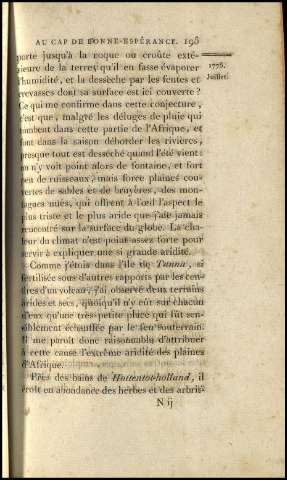 AU CAP DE BONNE-ESPÉRANCE. 195
porte jusqu'à la roque ou croûte exté-
rieure de la terre, qu'il en fasse évaporer
l'humidité, et la dessèche par les fentes et
crevasses dont sa surface est ici couverte ?
Ce qui me confirme dans cette conjecture,
c'est que, malgré les déluges de pluie qui
tombent dans cette partie de l'Afrique, et
font dans la saison déborder les rivières,
presque tout est desséché quand l'été vient :
on n'y voit point alors de fontaine, et fort
peu de ruisseaux ; mais force plaines cou-
vertes de sables et de bruyères, des mon-
tagnes nues, qui offrent à l'œil l'aspect le
plus triste et le plus aride que j'aie jamais
rencontré sur la surface du globe. La cha-
leur du climat n'est point assez forte pour
servir à expliquer une si grande aridité.
Comme j'étois dans l'île de Tanna, si
fertilisée sous d'autres rapports par les cen-
dres d'un volcan, j'ai observé deux terrains
arides et secs, quoiqu'il n'y eût sur chacun
d'eux qu'une très-petite place qui fût sen-
siblement échauffée par le feu souterrain.
Il me paroît donc raisonnable d'attribuer
à cette cause l'extrême aridité des plaines
d'Afrique.
Près des bains de Hottentot-holland, il
croît en abondance des herbes et des arbris-
N ij
1775.
Juillet.